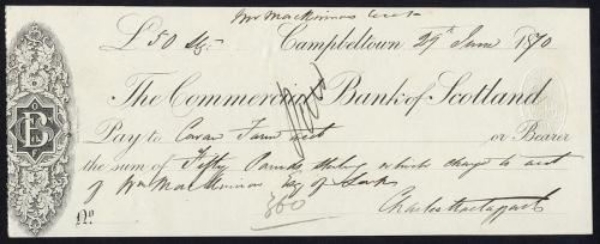 Wm MacKinnons Acct
£50 Stg. Campbeltown 29th June 1870
The Commercial Bank of Scotland
Pay to Farm acct or Bearer
the sum of Fifty Pounds Sterling which charge to acct
of Wm MacKinnon Esq of
No. 360
Charles Mactaggart
CB